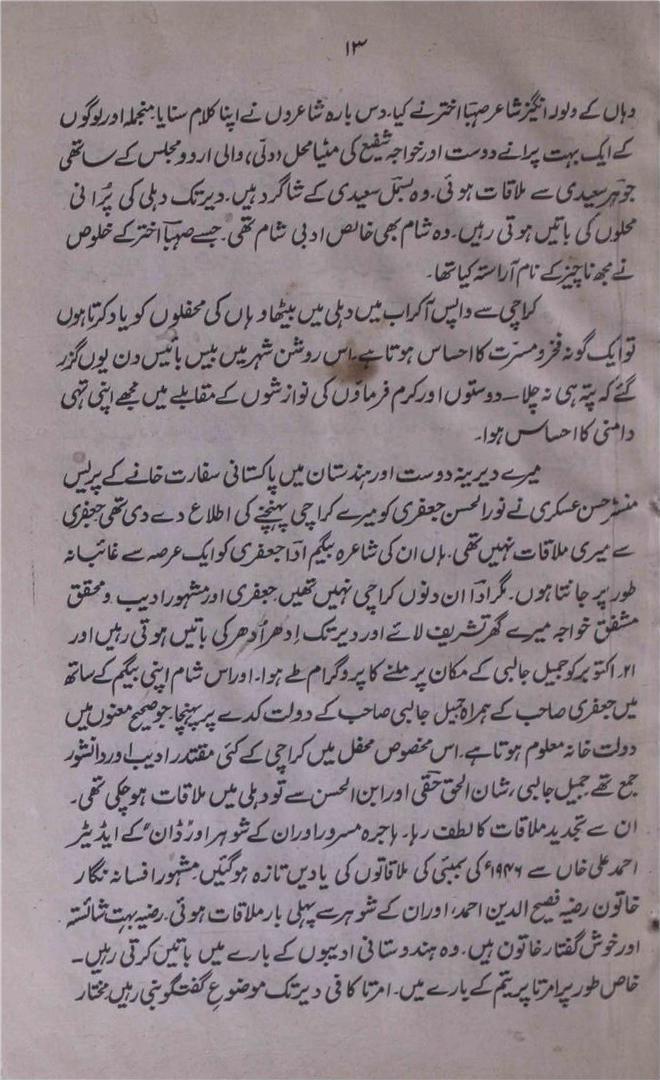 ۱۳
وہاں کے ولولہ انگیز شاعر صہبا اختر نے کیا۔ دس بارہ شاعروں نے اپنا کلام سنایا منجملہ اور لوگوں
کے ایک بہت پرانے دوست اور خواجہ شفیع کی مٹیا محل دولی، والی اردو مجلس کے ساتھی
جوہر سعیدی سے ملاقات ہوئی۔ وہ بسمل سعیدی کے شاگرد ہیں۔ دیر تک دہلی کی پرانی
محلوں کی باتیں ہوتی رہیں۔ وہ شام بھی خالص ادبی شام تھی۔ جسے صہبا اختر کے خلوص
نے مجھ ناچیز کے نام آراستہ کیا تھا۔
کراچی سے واپس آکر اب میں دہلی میں بیٹھا وہاں کی محفلوں کو یاد کرتا ہوں
تو ایک گونہ فخر و مسرت کا احساس ہوتا ہے۔ اس روشن شہر میں بیس بائیس دن یوں گزر
گئے کہ پتہ ہی نہ چلا۔ دوستوں اور کرم فرماؤں کی نوازشوں کے مقابلے میں مجھے اپنی تہی
دامنی کا احساس ہوا۔
میرے دیرینہ دوست اور ہندستان میں پاکستانی سفارت خانے کے پریس
منسٹر حسن عسکری نے نورالحسن جعفری کو میرے کراچی پہنچنے کی اطلاع دے دی تھی جعفری
سے میری ملاقات نہیں تھی۔ ہاں ان کی شاعرہ بیگم ادا جعفری کو ایک عرصہ سے غائبانہ
طور پر جانتا ہوں۔ مگر ادا ان دنوں کراچی نہیں تھیں۔ جعفری اور مشہور ادیب و محقق
مشفق خواجہ میرے گھر تشریف لائے اور دیر تک اِدھر اُدھر کی باتیں ہوتی رہیں اور
۲۱۔ اکتوبر کو جمیل جالبی کے مکان پر ملنے کا پروگرام طے ہوا۔ اور اس شام اپنی بیگم کے ساتھ
میں جعفری صاحب کے ہمراہ جمیل جالبی صاحب کے دولت کدے پر پہنچا۔ جو صحیح معنوں میں
دولت خانہ معلوم ہوتا ہے۔ اس مخصوص محفل میں کراچی کے کئی مقتدر ادیب اور دانشور
جمع تھے۔ جمیل جالبی، شان الحق حقی اور ابن الحسن سے تو دہلی میں ملاقات ہو چکی تھی۔
ان سے تجدید ملاقات کا لطف رہا۔ ہاجرہ مسرور اور ان کے شوہر اور "ڈان" کے ایڈیٹر
احمد علی خاں سے ۱۹۴۶ء کی بمبئی کی ملاقاتوں کی یادیں تازہ ہوگئیں۔ مشہور افسانہ نگار
خاتون رضیہ فصیح الدین احمد، اور ان کے شوہر سے پہلی بار ملاقات ہوئی۔ رضیہ بہت شائستہ
اور خوش گفتار خاتون ہیں۔ وہ ہندوستانی ادیبوں کے بارے میں باتیں کرتی رہیں۔
خاص طور پر امرتا پریتم کے بارے میں۔ امرتا کافی دیر تک موضوعِ گفتگو بنی رہیں۔ مختار